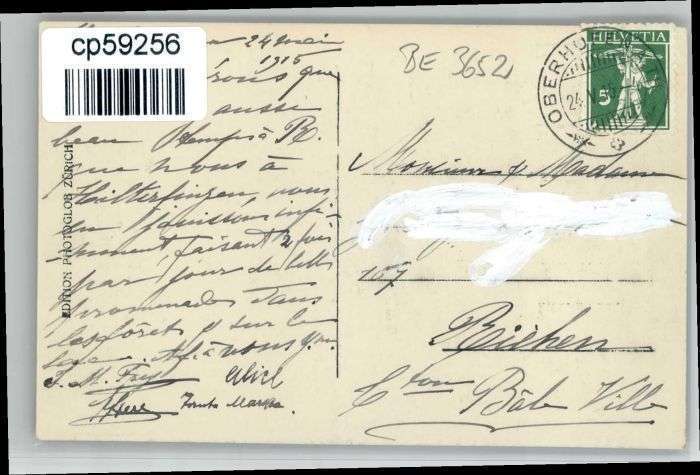 cp59256
24 mai
1915
vous que
aussi
beau temps à R.
que nous à
Hilterfingen, nous
en jouissons infi-
niment faisant 2 fois
par jour de belles
promenades dans
les forêts & sur le
Aff. à vous
J. M. Frey
Alice
Tante Martha.
EDITION PHOTOGLOB ZÜRICH
BE 3652
HELVETIA
5
OBERHO
24. V.
Monsieur & Madame
107
Riehen
C'ton Bâle Ville